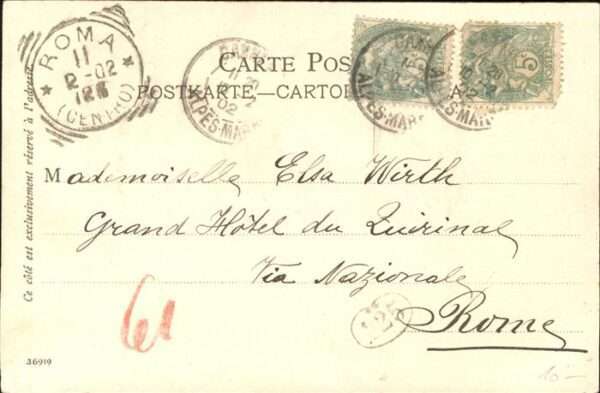 ROMA
11
2-02
(CENTRO)
CARTE
POSTKARTE—CARTO
ALPES-MAR
ALPES-MAR
ALPES-MAR
02
5
Ce côté est exclusivement réservé à l'adresse
Mademoiselle Elsa Wirth
Grand Hôtel du Quirinal
Via Nazionale
Rome
61
36919
10-